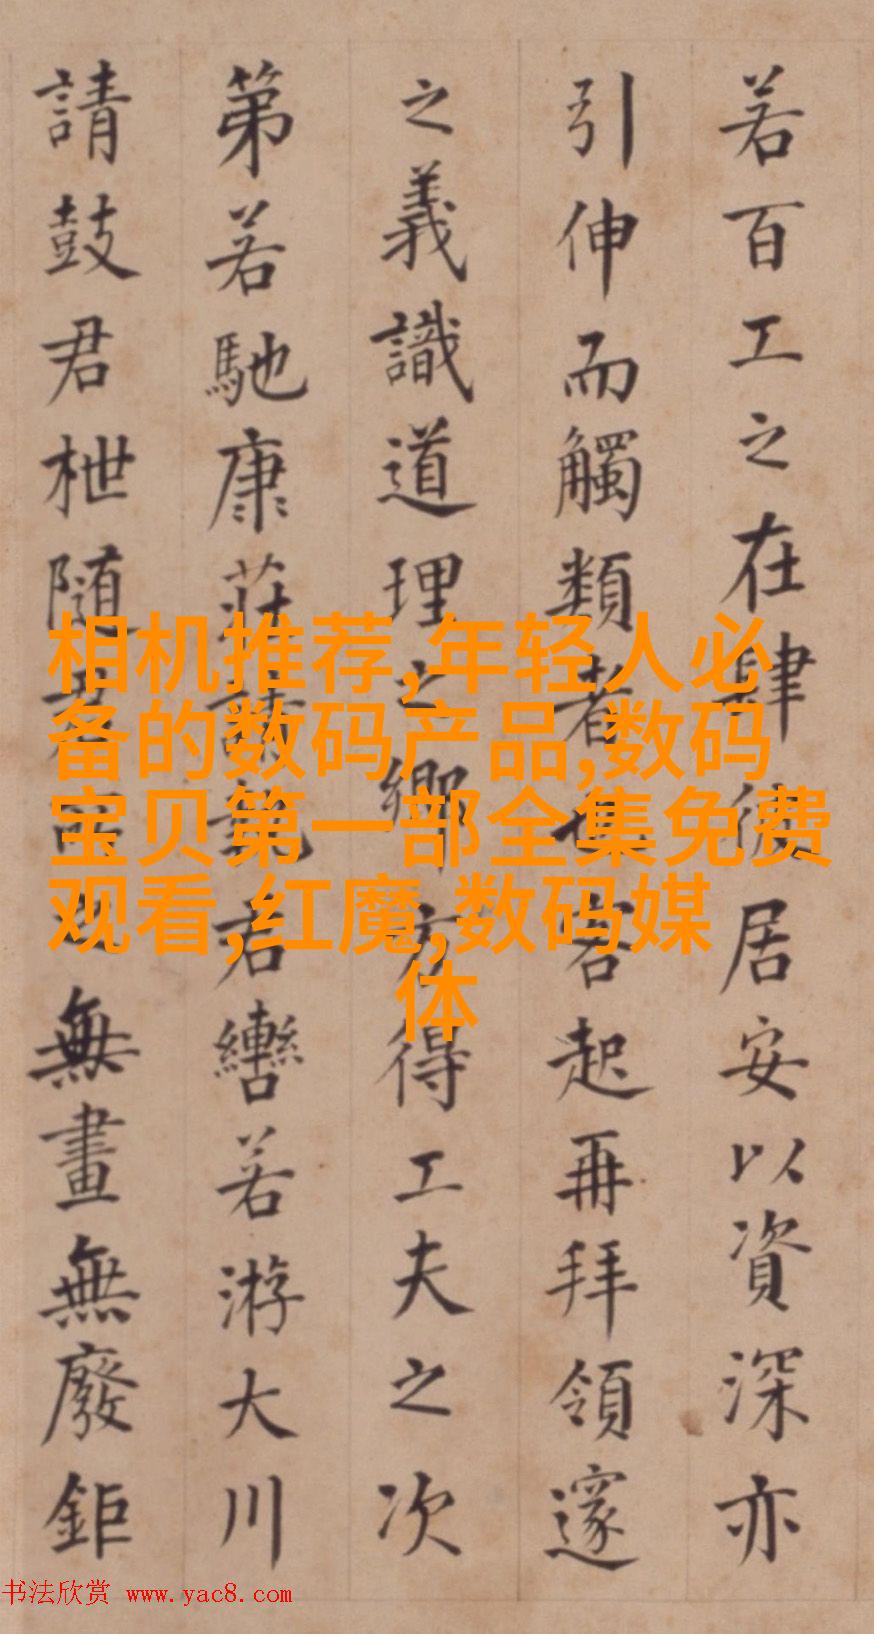 若百工之在肆居安以資深亦
引伸而觸類者也客起再拜領邃
之義識道理之鄉方得工夫之次
第若馳康莊請執君轡若游大川
請鼓君枻隨君所之無畫無廢鉅
相机推荐,年轻人必
备的数码产品,数码
宝贝第一部全集免费
观看,红魔,数码媒
体
书法欣赏 www.yac8.com